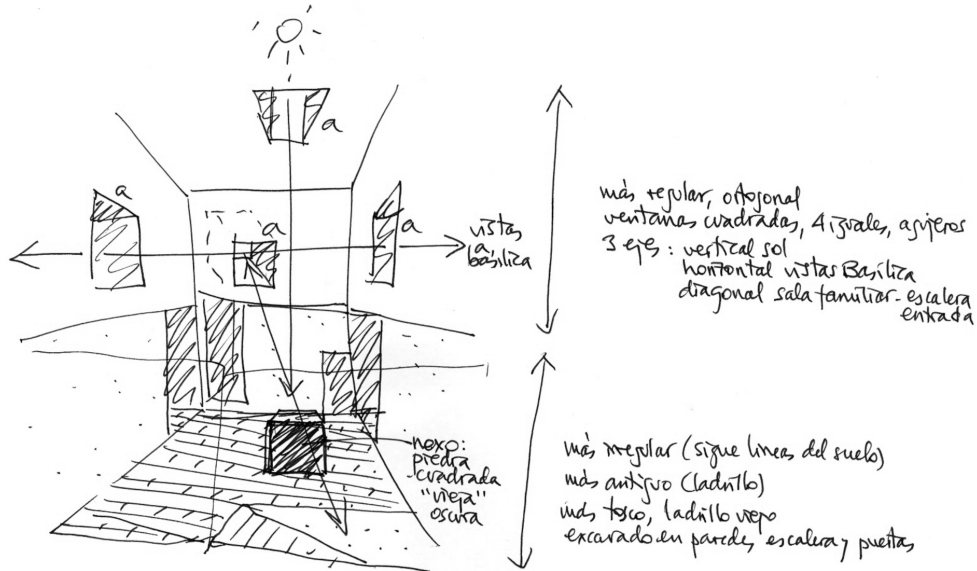 a
a
a
a
vistas
a
basílica
más regular, ortogonal
ventanas cuadradas, 4 iguales, agujeros
3 ejes: vertical sol
horizontal vistas Basílica
diagonal sala familiar-escalera
entrada
nexo:
piedra
cuadrada
"vieja"
oscura
más irregular (sigue lineas del suelo)
más antiguo (ladrillo)
más tosco, ladrillo viejo
excavado en paredes escalera y puertas